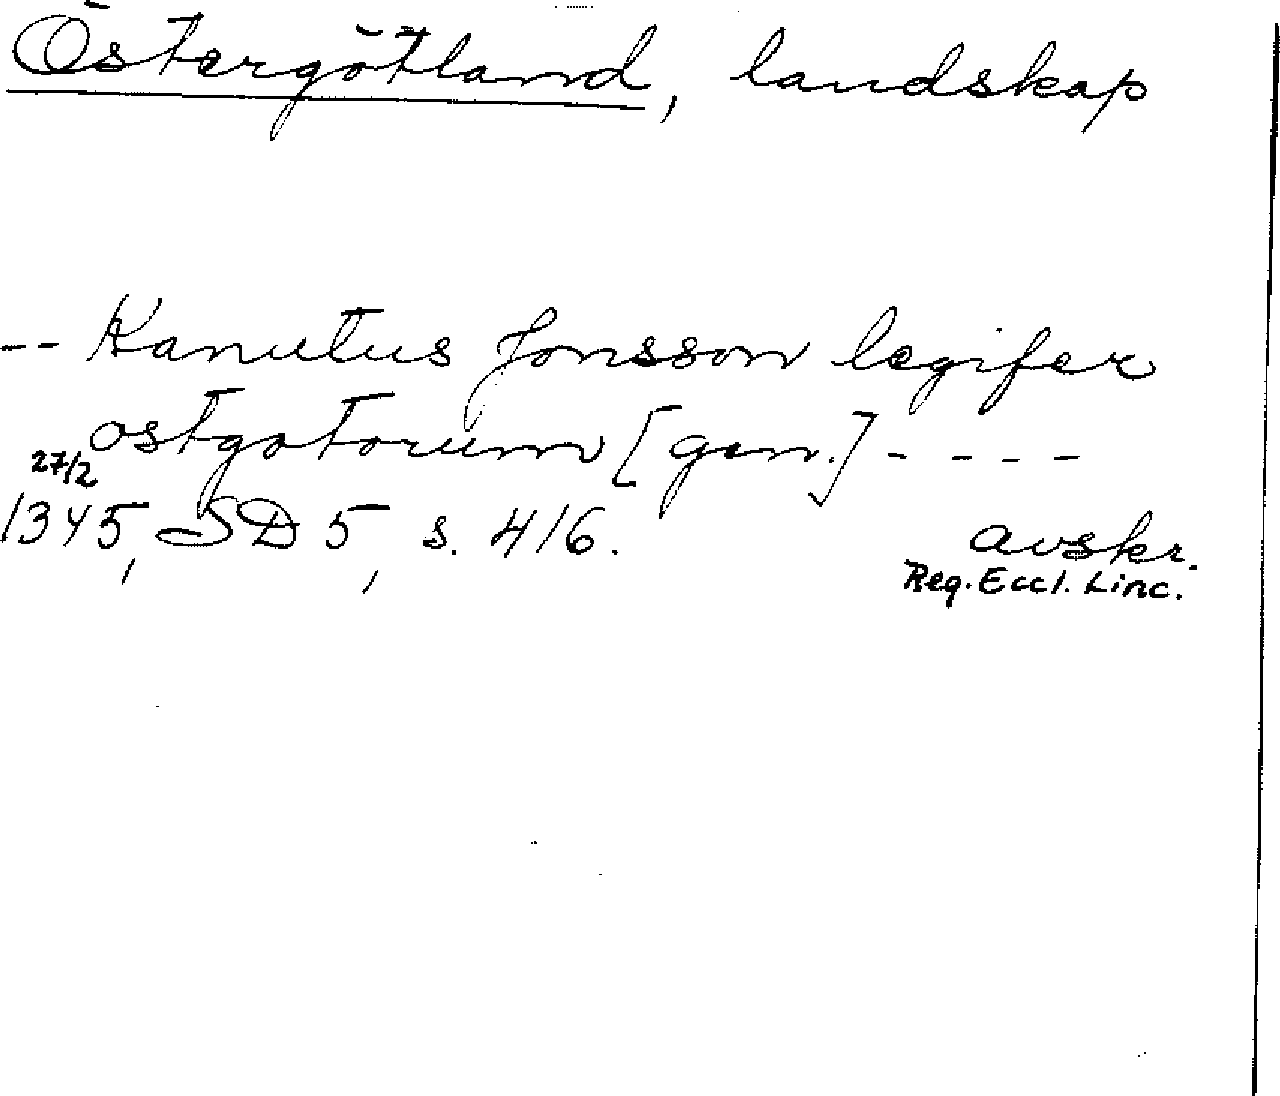 Östergötland, landskap
-- Kanutus Jonsson legifer
ostgotorum [gen.] - - - -
27/2
1345, SD 5, s. 416.
avskr.
Reg. Eccl. Linc.